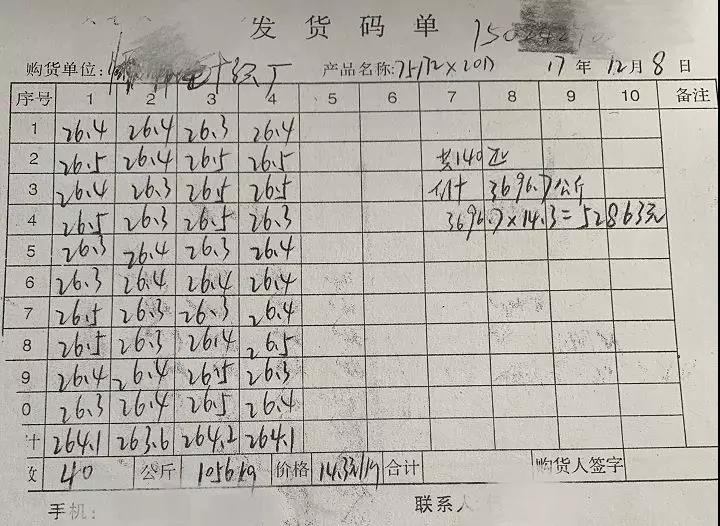 发货码单
购货单位: 针织厂 产品名称: 75D/72×20D 17年12月8日
序号 1 2 3 4 5 6 7 8 9 10 备注
1 26.4 26.4 26.3 26.4
2 26.5 26.4 26.5 26.5 共140匹
3 26.4 26.3 26.5 26.5 计 3696.7公斤
4 26.5 26.3 26.5 26.3 3696.7×14.3=52863元
5 26.3 26.4 26.3 26.4
6 26.3 26.4 26.4 26.4
7 26.5 26.3 26.3 26.4
8 26.5 26.3 26.4 26.5
9 26.4 26.4 26.5 26.3
0 26.3 26.4 26.5 26.4
计 264.1 263.6 264.2 264.1
40 公斤 1056kg 价格 14.3元/kg 合计 购货人签字
手机: 联系人